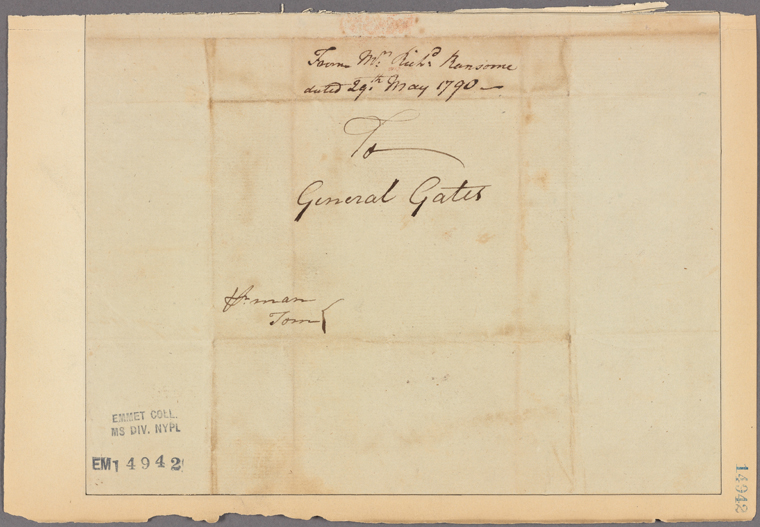 From Mr. Richd. Ransome
dated 29th. May 1790 —
To
General Gates
Pr. man
Tom
EMMET COLL.
MS DIV. NYPL
EM 14942
14942